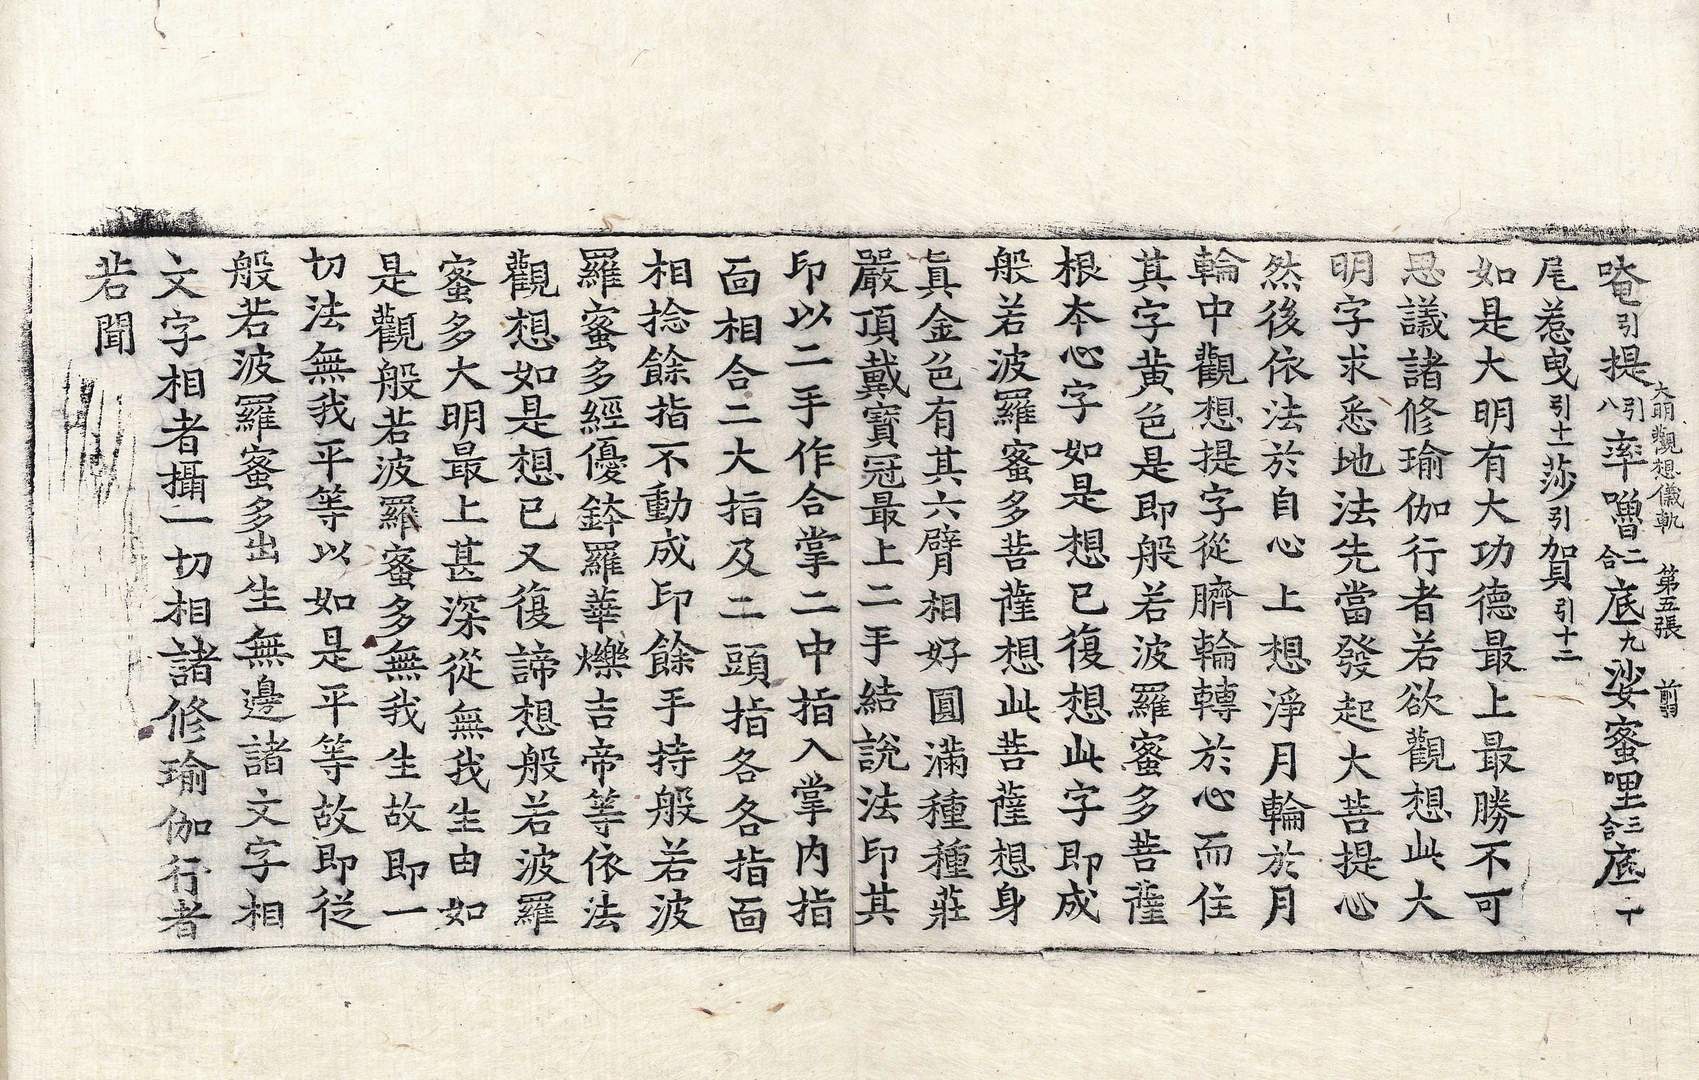 大明觀想儀軌　第五張　前
唵引提引八率嚕二合底九娑蜜哩三合底一十
尾惹曳引十一莎引賀引十二
如是大明有大功德最上最勝不可
思議諸修瑜伽行者若欲觀想此大
明字求悉地法先當發起大菩提心
然後依法於自心上想淨月輪於月
輪中觀想提字從臍輪轉於心而住
其字黃色是即般若波羅蜜多菩薩
根本心字如是想已復想此字即成
般若波羅蜜多菩薩想此菩薩想身
眞金色有其六臂相好圓滿種種莊
嚴頂戴寶冠最上二手結說法印其
印以二手作合掌二中指入掌內指
面相合二大指及二頭指各各指面
相捻餘指不動成印餘手持般若波
羅蜜多經優鉢羅華爍吉帝等依法
觀想如是想已又復諦想般若波羅
蜜多大明最上甚深從無我生由如
是觀般若波羅蜜多無我生故即一
切法無我平等以如是平等故即從
般若波羅蜜多出生無邊諸文字相
文字相者攝一切相諸修瑜伽行者
若聞